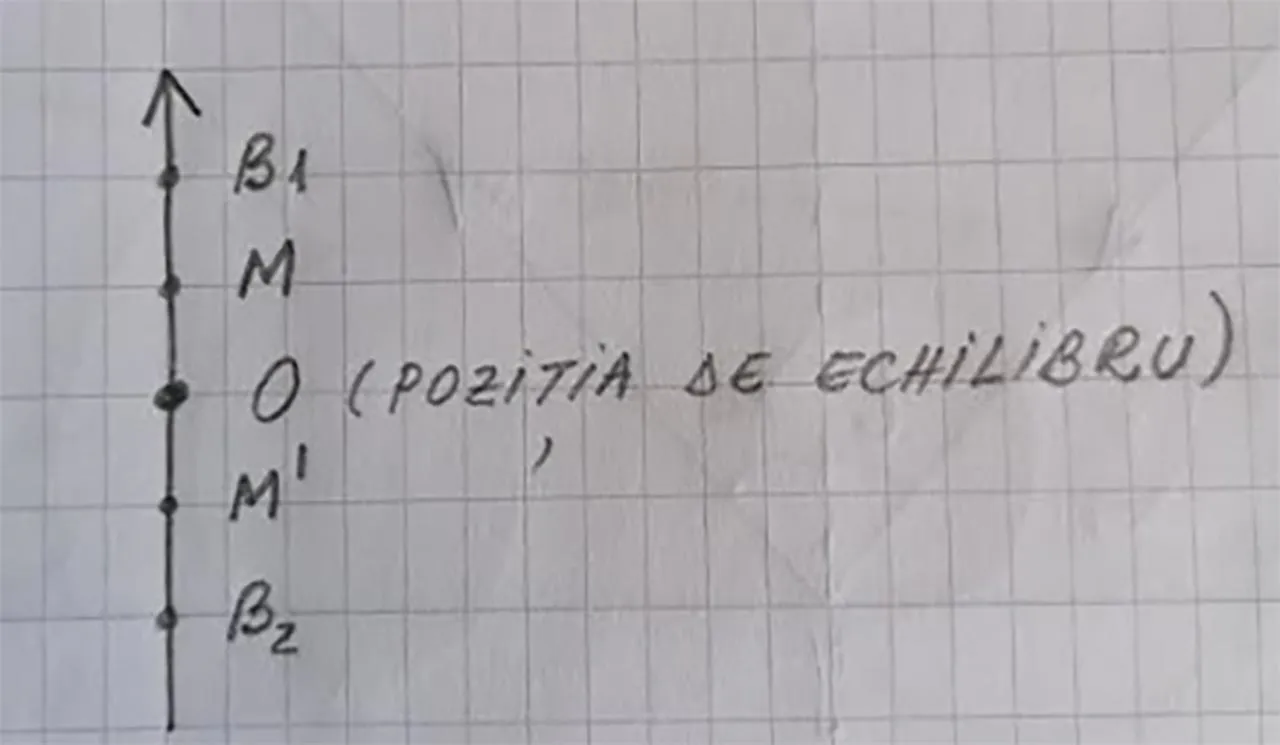 B1
M
O (POZIȚIA DE ECHILIBRU)
M'
B2